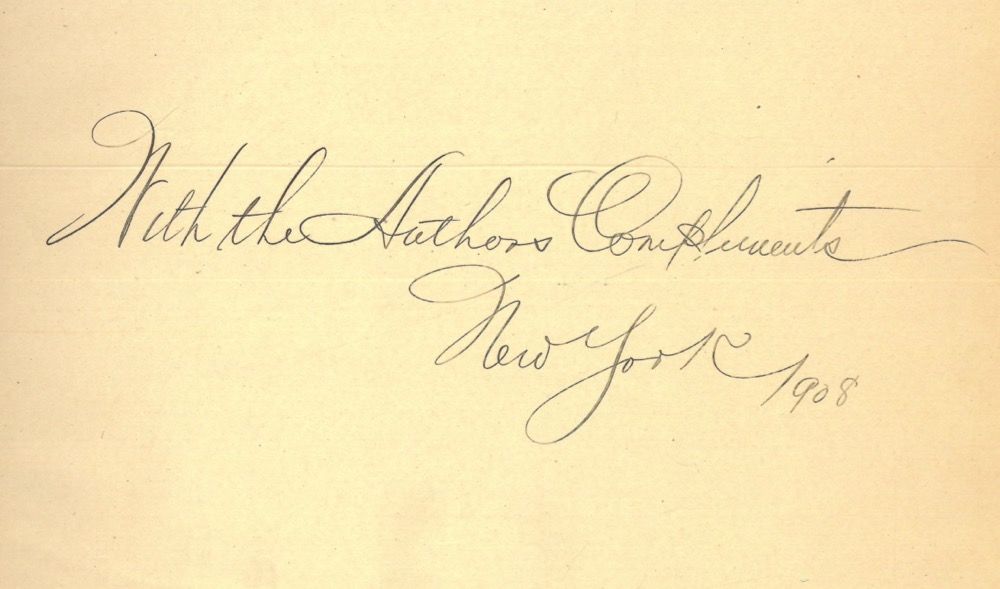 With the Authors Compliments
New York 1908